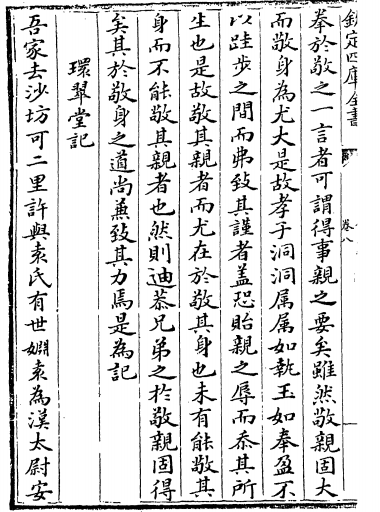 欽定四庫全書
卷八
奉於敬之一言者可謂得事親之要矣雖然敬親固大
而敬身為尤大是故孝子洞洞属属如執玉如奉盈不
以跬步之間而弗致其謹者蓋恐貽親之辱而忝其所
生也是故敬其親者而尤在於敬其身也未有能敬其
身而不能敬其親者也然則迪恭兄弟之於敬親固得
矣其於敬身之道尚兼致其力焉是為記
環翠堂記
吾家去沙坊可二里許與袁氏有世姻袁為漢太尉安